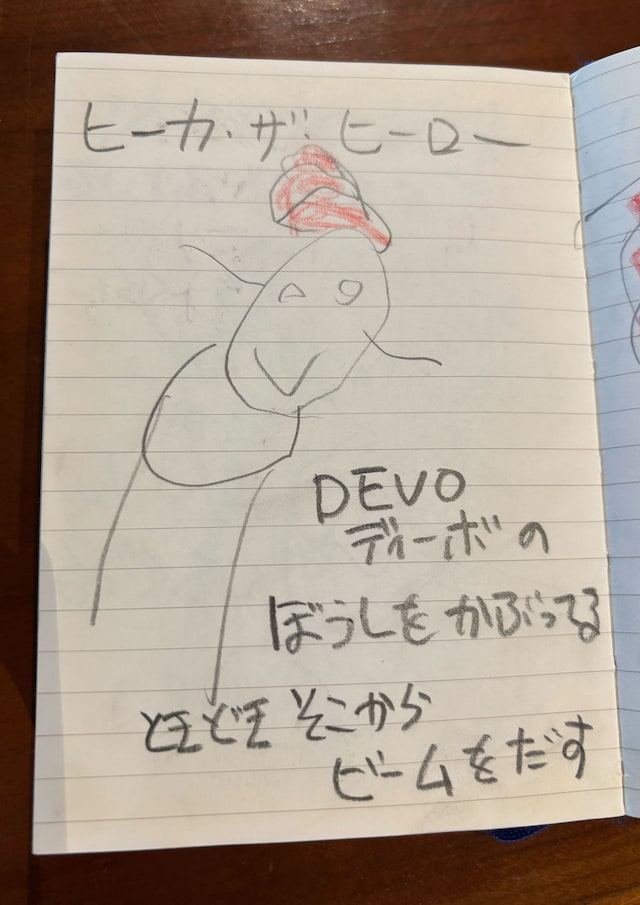 ヒーカ・ザ・ヒーロー
DEVO
ディーボの
ぼうしを かぶってる
ときどき そこから
ビームをだす